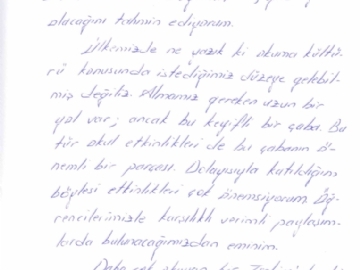 olacağını tahmin ediyorum.
Ülkemizde ne yazık ki okuma kültü-
rü konusunda istediğimiz düzeye gelebil-
miş değiliz. Almamız gereken uzun bir
yol var; ancak bu keyifli bir çaba. Bu
tür okul etkinlikleri de bu çabanın ö-
nemli bir parçası. Dolayısıyla katıldığım
böylesi etkinlikleri çok önemsiyorum. Öğ-
rencilerimizle karşılıklı verimli paylaşım-
larda bulunacağımızdan eminim.
Daha çok okuyan bir